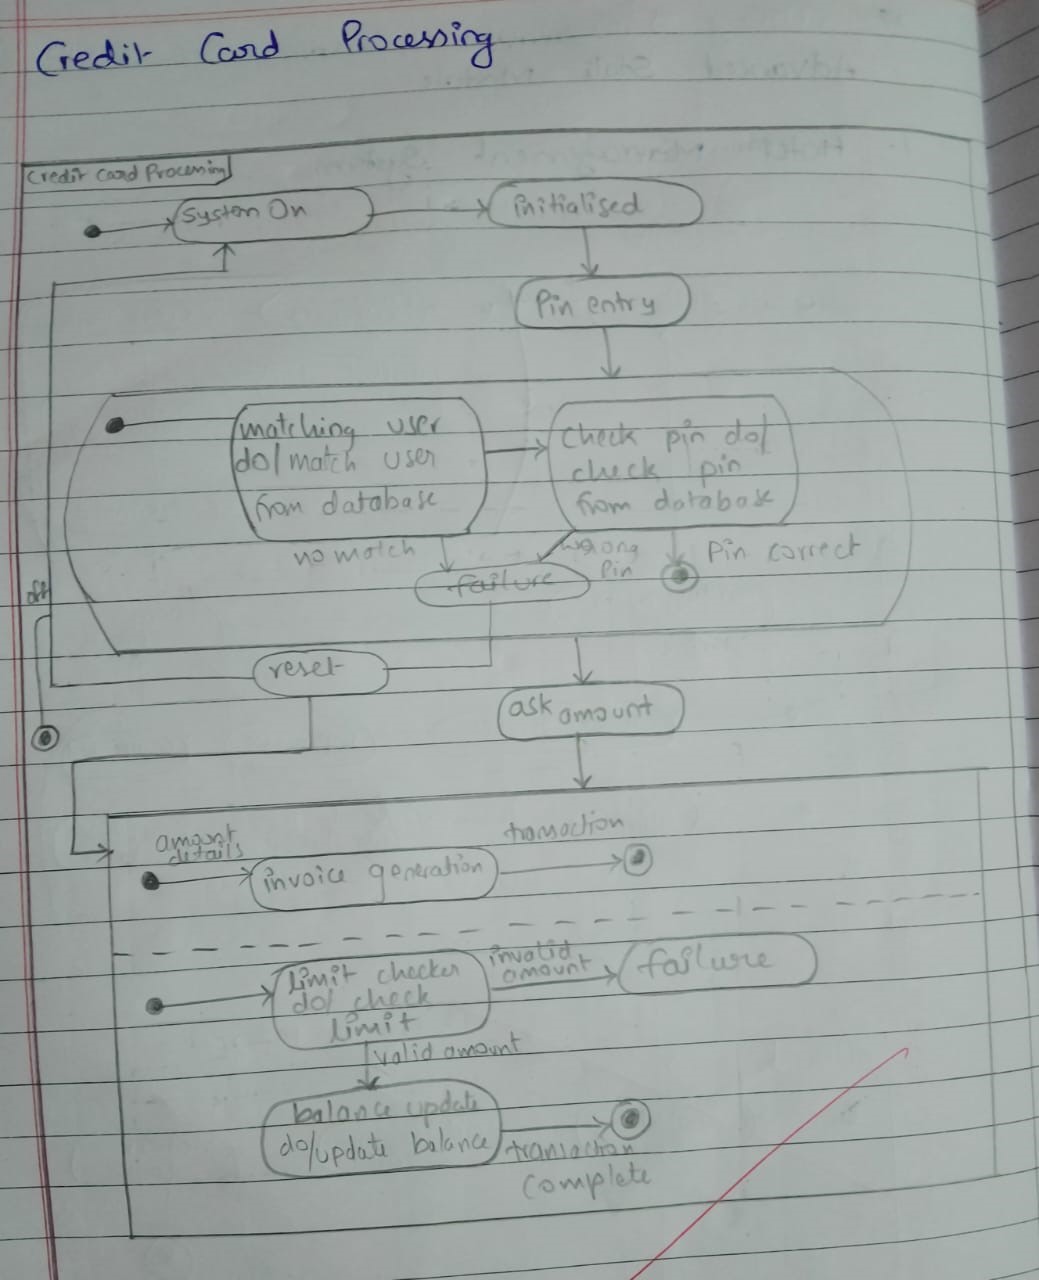 Credit Card Processing
Credit Card Processing
System On
initialised
Pin entry
matching user
do/match user
from database
check pin do/
check pin
from database
no match
wrong
pin
Pin correct
failure
off
reset
ask amount
amount
details
transaction
invoice generation
invalid
amount
limit checker
do/ check
limit
failure
valid amount
balance update
do/update balance
transaction
complete